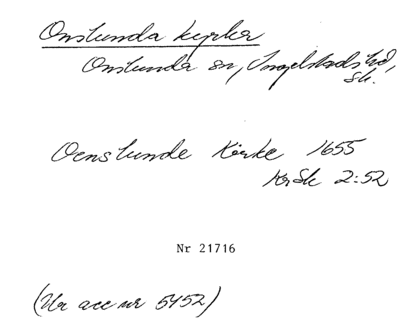 Onslunda kyrka
Onslunda sn, Ingelstads hd,
Sk.
Oenslunde Körke 1655
KrSk 2:52
Nr 21716
(Ur acc nr 5452)